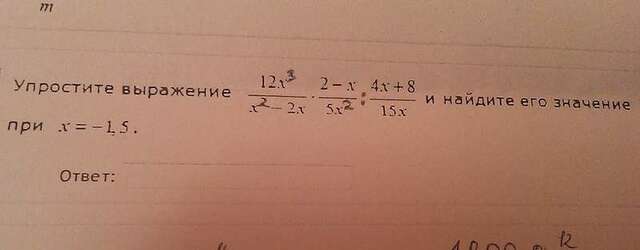 m
Упростите выражение 12x³/(x² − 2x) · (2 − x)/(5x²) : (4x + 8)/(15x) и найдите его значение
при x = −1,5.
Ответ: